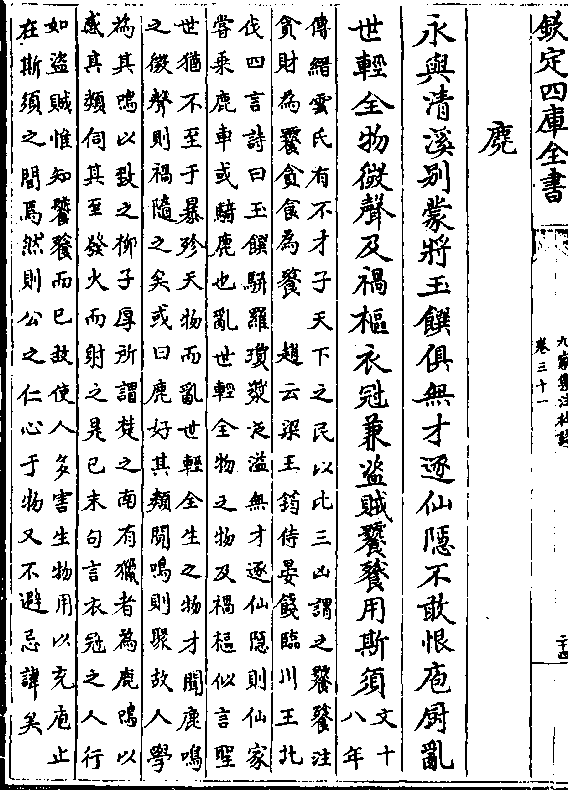 欽定四庫全書
九家集注杜詩
卷三十一
二十四
麂
永與清溪别蒙將玉饌俱無才逐仙隱不敢恨庖厨亂
世輕全物微聲及禍樞衣冠兼盜賊饕餮用斯須文十
八年
傳縉雲氏有不才子天下之民以比三凶謂之饕餮注
貪財為饕貪食為餮　趙云梁王筠侍宴餞臨川王北
伐四言詩曰玉饌駢羅瓊漿泛溢無才逐仙隱則仙家
嘗乘鹿車或騎鹿也亂世輕全物之物及禍樞似言聖
世猶不至于暴殄天物而亂世輕全生之物才聞鹿鳴
之微聲則禍隨之矣或曰鹿好其類聞鳴則聚故人學
為其鳴以致之柳子厚所謂楚之南有獵者為鹿鳴以
感其類伺其至發火而射之是已末句言衣冠之人行
如盜賊惟知饕餮而已故使人多害生物用以充庖止
在斯須之間焉然則公之仁心于物又不避忌諱矣